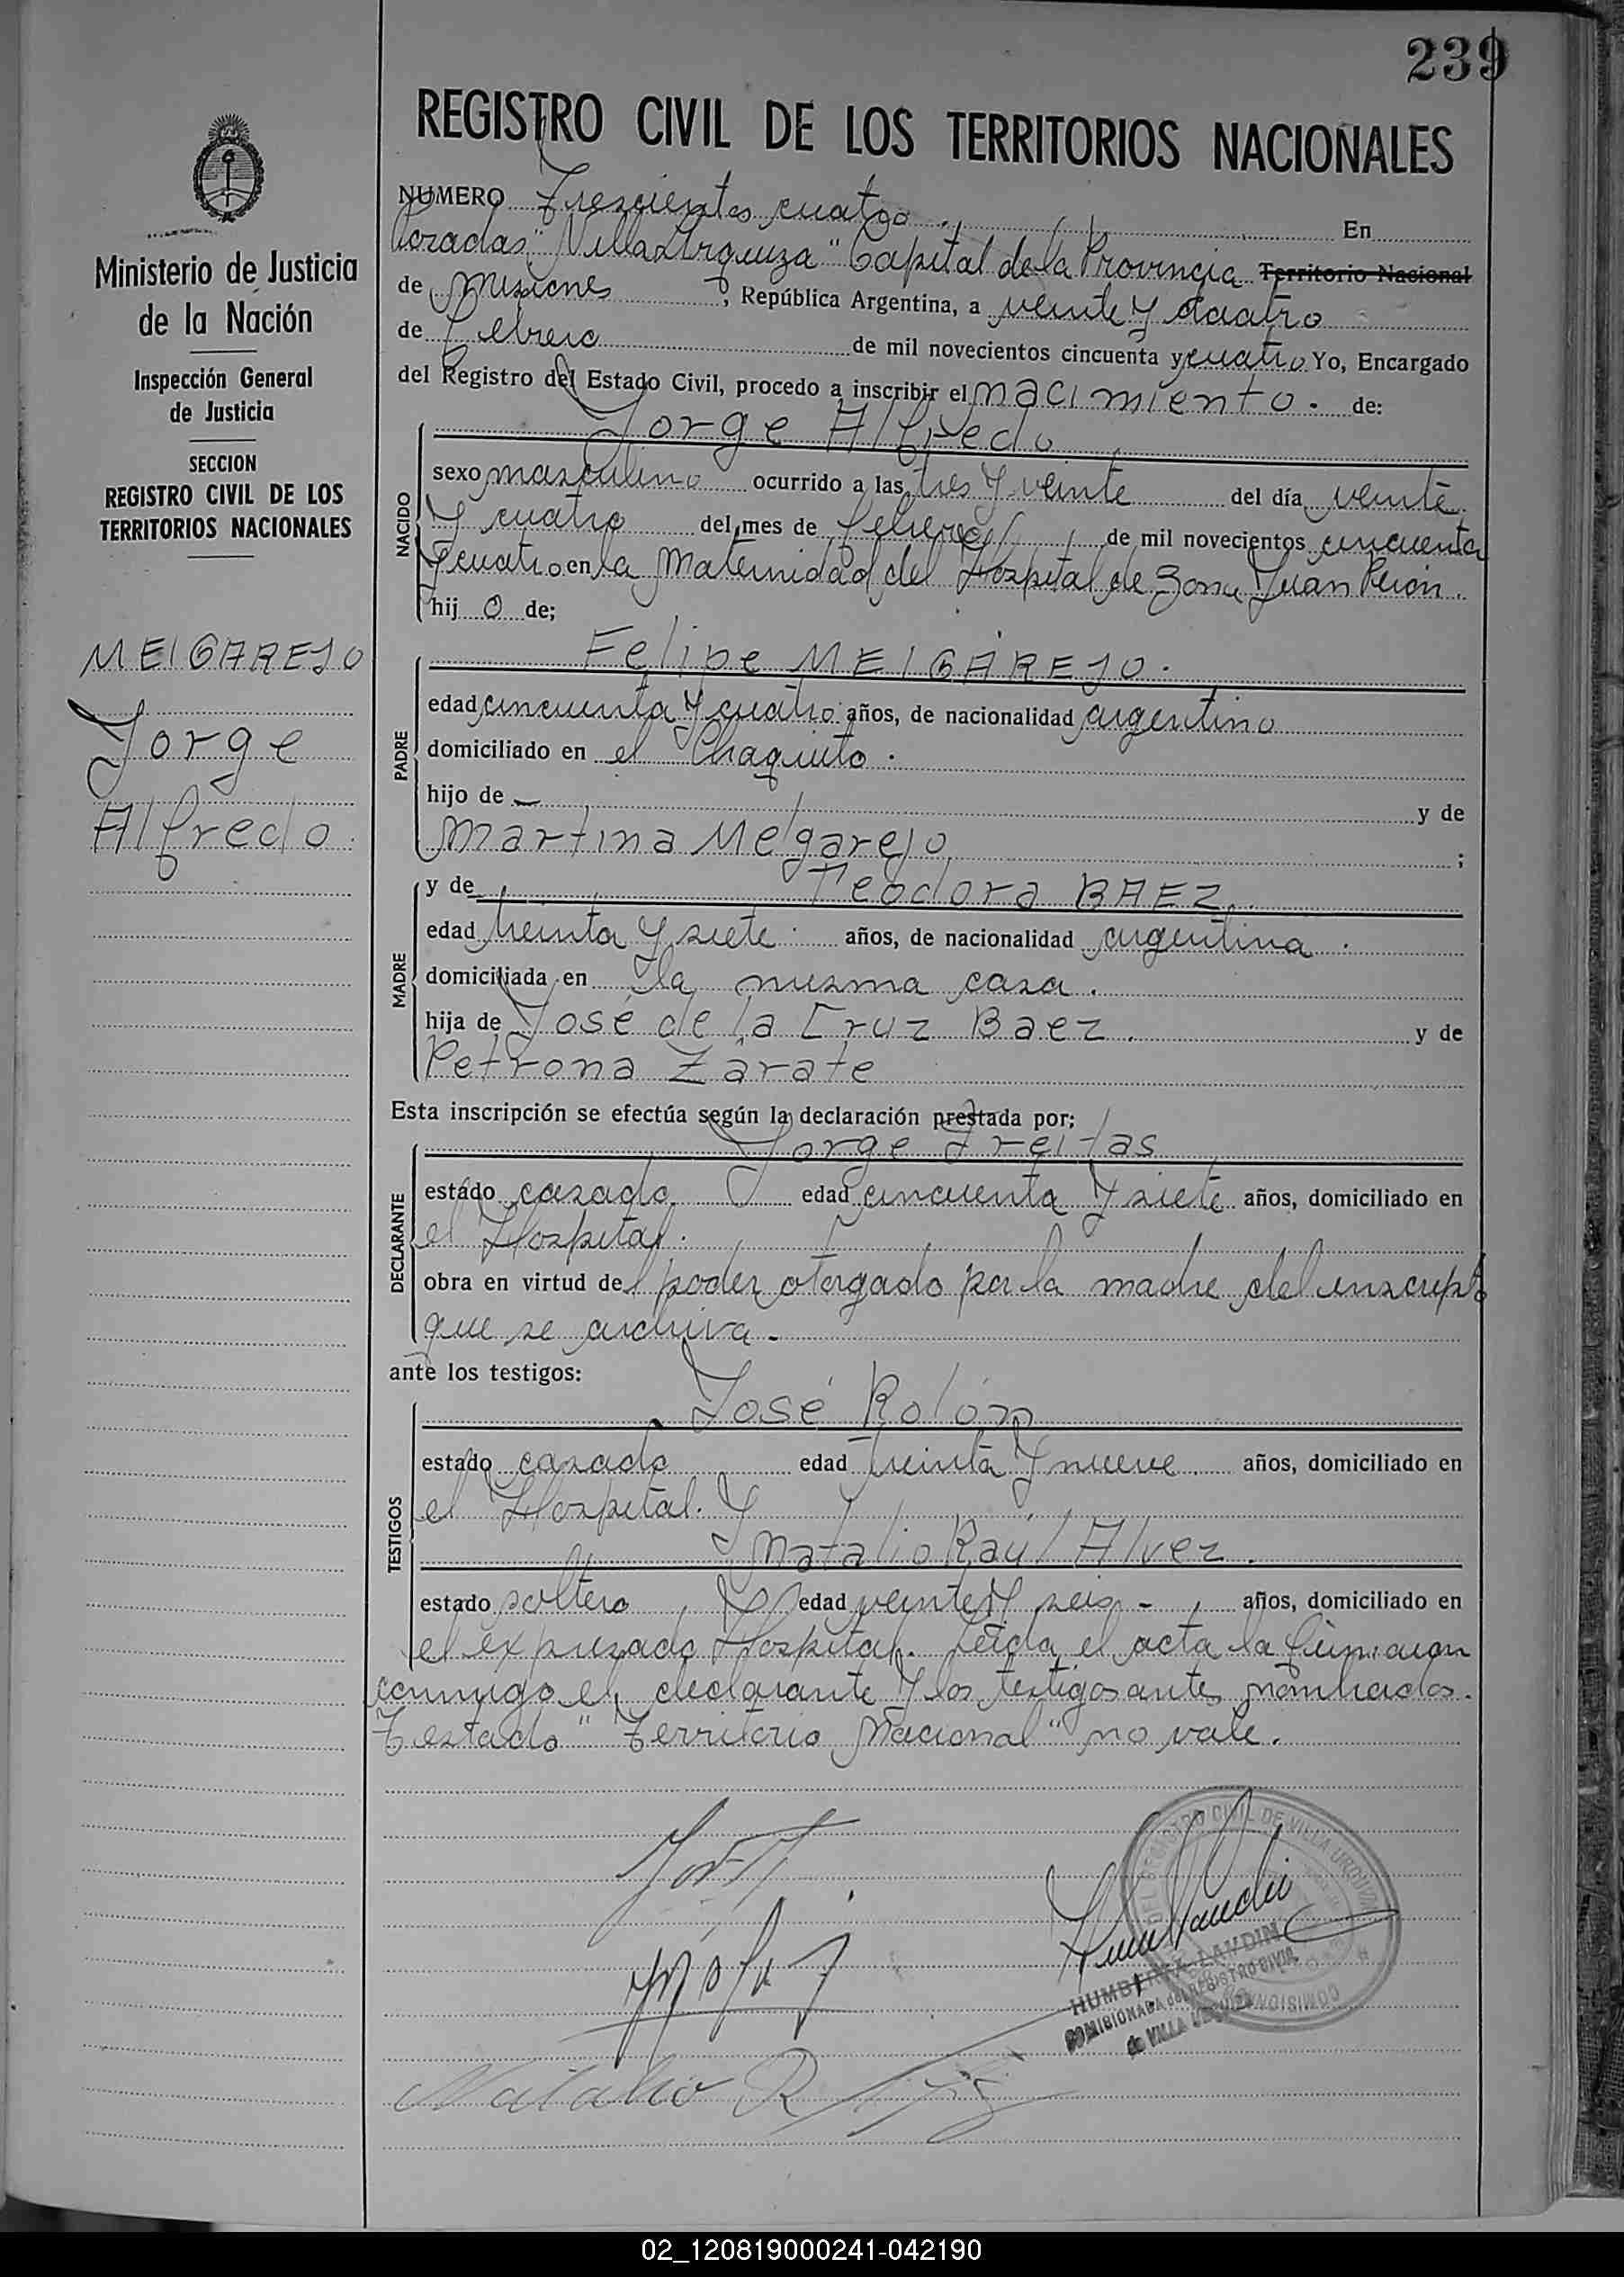 239
REGISTRO CIVIL DE LOS TERRITORIOS NACIONALES
Ministerio de Justicia
de la Nación
Inspección General
de Justicia
SECCION
REGISTRO CIVIL DE LOS
TERRITORIOS NACIONALES
MElGAREJO
Jorge
Alfredo.
NUMERO Trescientos cuatro. En
Posadas, "Villa Urquiza" Capital de la Provincia Territorio Nacional
de Misiones, República Argentina, a veinte y cuatro
de febrero de mil novecientos cincuenta y cuatro Yo, Encargado
del Registro del Estado Civil, procedo a inscribir el nacimiento. de:
Jorge Alfredo
NACIDO
sexo masculino ocurrido a las tres y veinte del día veinte
y cuatro del mes de febrero de mil novecientos cincuenta
y cuatro en la Maternidad del Hospital de Zona Juan Perón.
hij o de;
Felipe MElGAREJO.
PADRE
edad cincuenta y cuatro años, de nacionalidad argentino
domiciliado en el Chaquito.
hijo de — y de
Martina Melgarejo ;
y de Teodora BAEZ.
MADRE
edad treinta y siete años, de nacionalidad argentina.
domiciliada en la misma casa.
hija de José de la Cruz Baez. y de
Petrona Zarate
Esta inscripción se efectúa según la declaración prestada por:
Jorge Freitas
DECLARANTE
estado casado edad cincuenta y siete años, domiciliado en
el Hospital.
obra en virtud del poder otorgado por la madre del inscripto
que se archiva.-
ante los testigos:
José Rolón
TESTIGOS
estado casado edad treinta y nueve años, domiciliado en
el Hospital. Y
Natalio Raúl Alvez.
estado soltero edad veinte y seis - años, domiciliado en
el expresado Hospital. Leída el acta la firmaron
conmigo el declarante y los testigos antes nombrados.
Testado "Territorio Nacional" no vale.
REGISTRO CIVIL DE VILLA URQUIZA
COMISIONADA del REGISTRO CIVIL
de VILLA URQUIZA
Natalio R
02_120819000241-042190